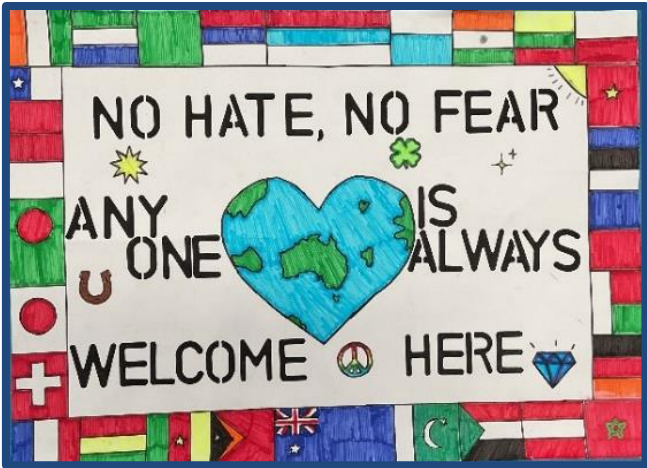 NO HATE, NO FEAR
ANY IS
ONE ALWAYS
WELCOME HERE